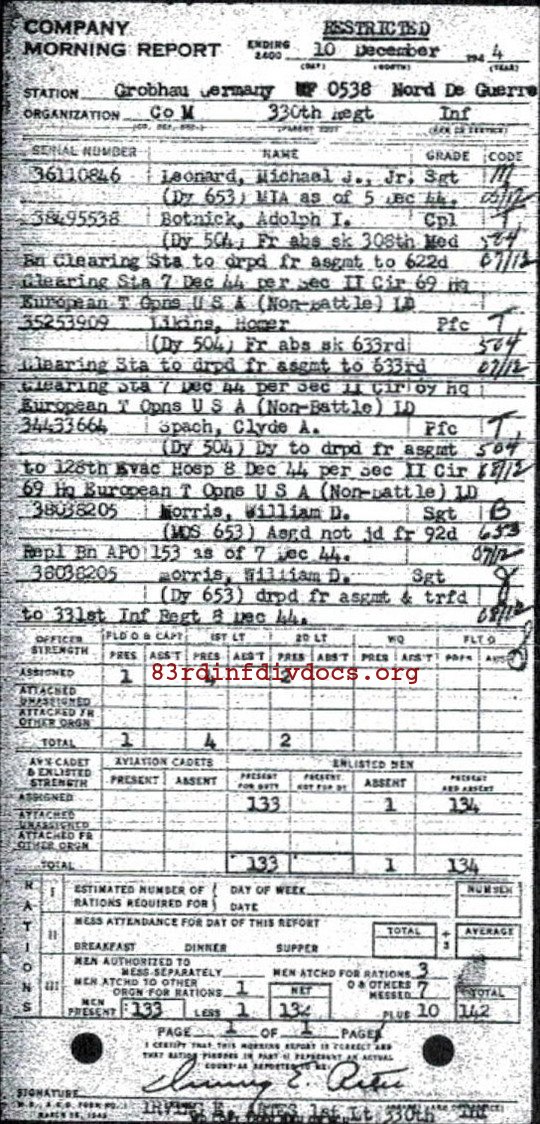 COMPANY
MORNING REPORT
RESTRICTED
ENDING 2400 10 December 194 4
(DAY) (MONTH) (YEAR)
STATION Grobhau Germany WF 0538 Nord De Guerre
ORGANIZATION Co M 330th Regt Inf
SERIAL NUMBER NAME GRADE CODE
36110846 Leonard, Michael J., Jr. Sgt
(Dy 653) MIA as of 5 Dec 44.
38495538 Botnick, Adolph I. Cpl T
(Dy 504) Fr abs sk 308th Med 504
Bn Clearing Sta to drpd fr asgmt to 622d 07/12
Clearing Sta 7 Dec 44 per Sec II Cir 69 Hq
European T Opns U S A (Non-Battle) LD
35253909 Likins, Homer Pfc T
(Dy 504) Fr abs sk 633rd 504
Clearing Sta to drpd fr asgmt to 633rd 07/12
Clearing Sta 7 Dec 44 per Sec II Cir 69 Hq
European T Opns U S A (Non-Battle) LD
34433664 Spach, Clyde A. Pfc T
(Dy 504) Dy to drpd fr asgmt 504
to 128th Evac Hosp 8 Dec 44 per Sec II Cir
69 Hq European T Opns U S A (Non-Battle) LD
38038205 Morris, William D. Sgt B
(MOS 653) Asgd not jd fr 92d 653
Repl Bn APO 153 as of 7 Dec 44. 07/12
38038205 Morris, William D. Sgt
(Dy 653) drpd fr asgmt & trfd
to 331st Inf Regt 8 Dec 44. 08/12
OFFICER STRENGTH FLD O & CAPT 1ST LT 2D LT WO FLT O
PRES ABS'T PRES ABS'T PRES ABS'T PRES ABS'T PRES ABS'T
ASSIGNED 1 4 2
83rdinfdivdocs.org
ATTACHED UNASSIGNED
ATTACHED FR OTHER ORGN
TOTAL 1 4 2
AV'N CADET & ENLISTED STRENGTH AVIATION CADETS ENLISTED MEN
PRESENT ABSENT PRESENT FOR DUTY PRESENT NOT FOR DY ABSENT PRESENT AND ABSENT
ASSIGNED 133 1 134
ATTACHED UNASSIGNED
ATTACHED FR OTHER ORGN
TOTAL 133 1 134
RATIONS
I ESTIMATED NUMBER OF RATIONS REQUIRED FOR DAY OF WEEK DATE NUMBER
II MESS ATTENDANCE FOR DAY OF THIS REPORT TOTAL ÷ 3 AVERAGE
BREAKFAST DINNER SUPPER
III MEN AUTHORIZED TO MESS SEPARATELY MEN ATCHD FOR RATIONS 3
MEN ATCHD TO OTHER ORGN FOR RATIONS 1 NET O & OTHERS MESSED 7 TOTAL
MEN PRESENT 133 LESS 1 132 PLUS 10 142
PAGE 1 OF 1 PAGES
I CERTIFY THAT THIS MORNING REPORT IS CORRECT AND
THAT RATION FIGURES IN PART II REPRESENT AN ACTUAL
COUNT AS REPORTED TO ME:
SIGNATURE
1st Lt 330th Inf